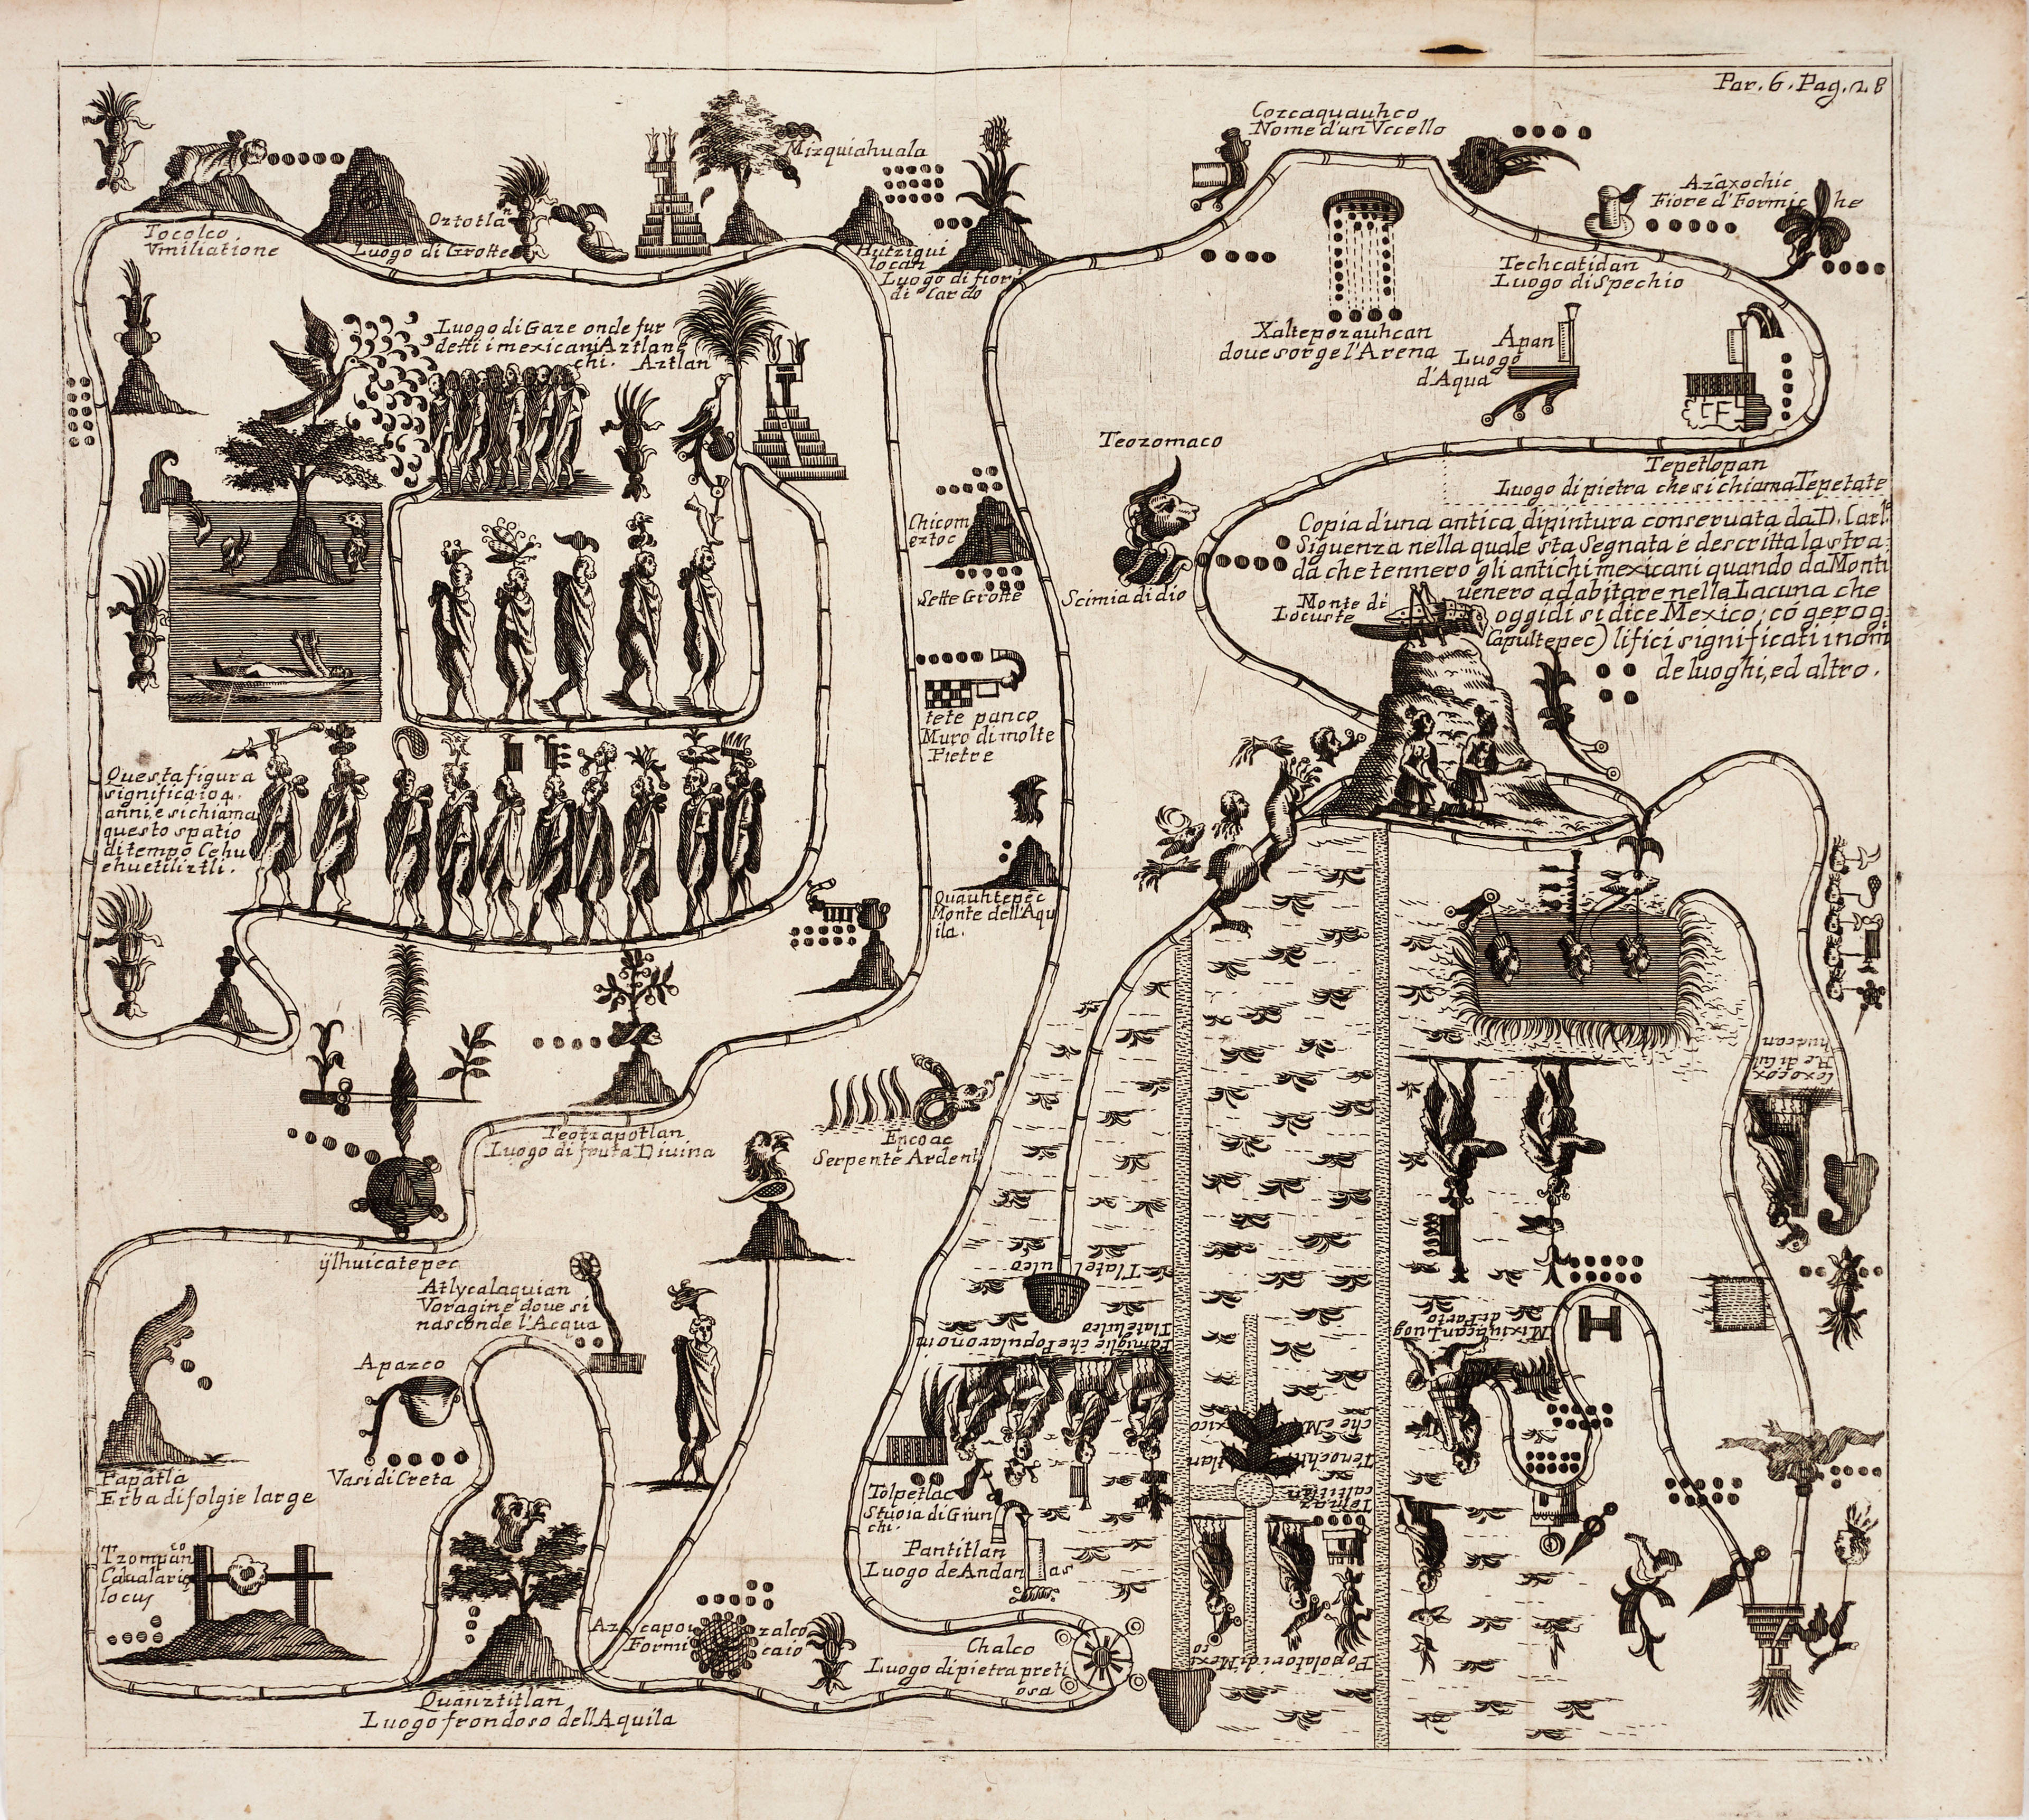 Par. 6. Pag. 28
Cozcaquauhco
Nome d'un Vccello
Mizquiahuala
Azaxochic
Fiore d'Formiche
Tocolco
Vmiliatione
Oztotlan
Luogo di Grotte
Huizigui
locan
Luogo di fiori
di Cardo
Techcatidan
Luogo di Spechio
Xaltepozauhcan
doue sorge l'Arena
Apan
Luogo
d'Aqua
Luogo di Gaze onde fur
detti i mexicani Aztlane
chi. Aztlan
Teozomaco
Scimia di dio
Tepetlopan
Luogo di pietra che si chiama Tepetate
Copia d'una antica dipintura conseruata da D. Carl.
Siguenza nella quale sta Segnata e descritta la stra
da che tennero gli antichi mexicani quando da Monti
uenero ad abitare nella Lacuna che
oggidi si dice Mexico; có gerog
lifici significati i nom
de luoghi, ed altro.
Monte di
Locuste
Capultepec)
Chicom
eztoc
Sette Grotte
tete panco
Muro di molte
Pietre
Questa figura
significa 104.
anni, e si chiama
questo spatio
di tempo Cehu
ehuetiliztli.
Quauhtepec
Monte dell'Aqu
ila.
Teotzapotlan
Luogo di fruta Diuina
Encoac
Serpente Ardent
Coxocox
Re di Cul
huacan
ÿlhuicatepec
Atlycalaquian
Voragine doue si
nasconde l'Acqua
Apazco
Vasi di Creta
Papatla
Erba di folgie large
Tzompanco
Caualarie
locus
Quauztitlan
Luogo frondoso dell'Aquila
Azcapozalco
Formicaio
Chalco
Luogo di pietra preti
osa
Tolpetlac
Stuoia di Giun
chi.
Pantitlan
Luogo de Andanas
Tlatel
ulco
Famiglie che Popularono in
Tlatelulco
Mixiucan Luog
di Parto
Tenochtitlan
che è Mexico
Temaz
caltitlan
Popolatori di Mexico